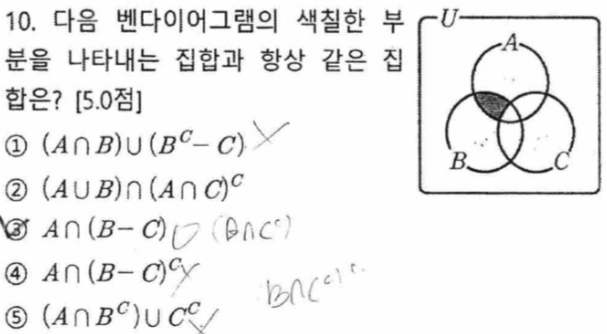 10. 다음 벤다이어그램의 색칠한 부
분을 나타내는 집합과 항상 같은 집
합은? [5.0점]
① (A∩B)∪(B^C−C)
② (A∪B)∩(A∩C)^C
③ A∩(B−C) (B∩C^c)
④ A∩(B−C)^C
B∩C^c
⑤ (A∩B^C)∪C^C
U
A
B
C